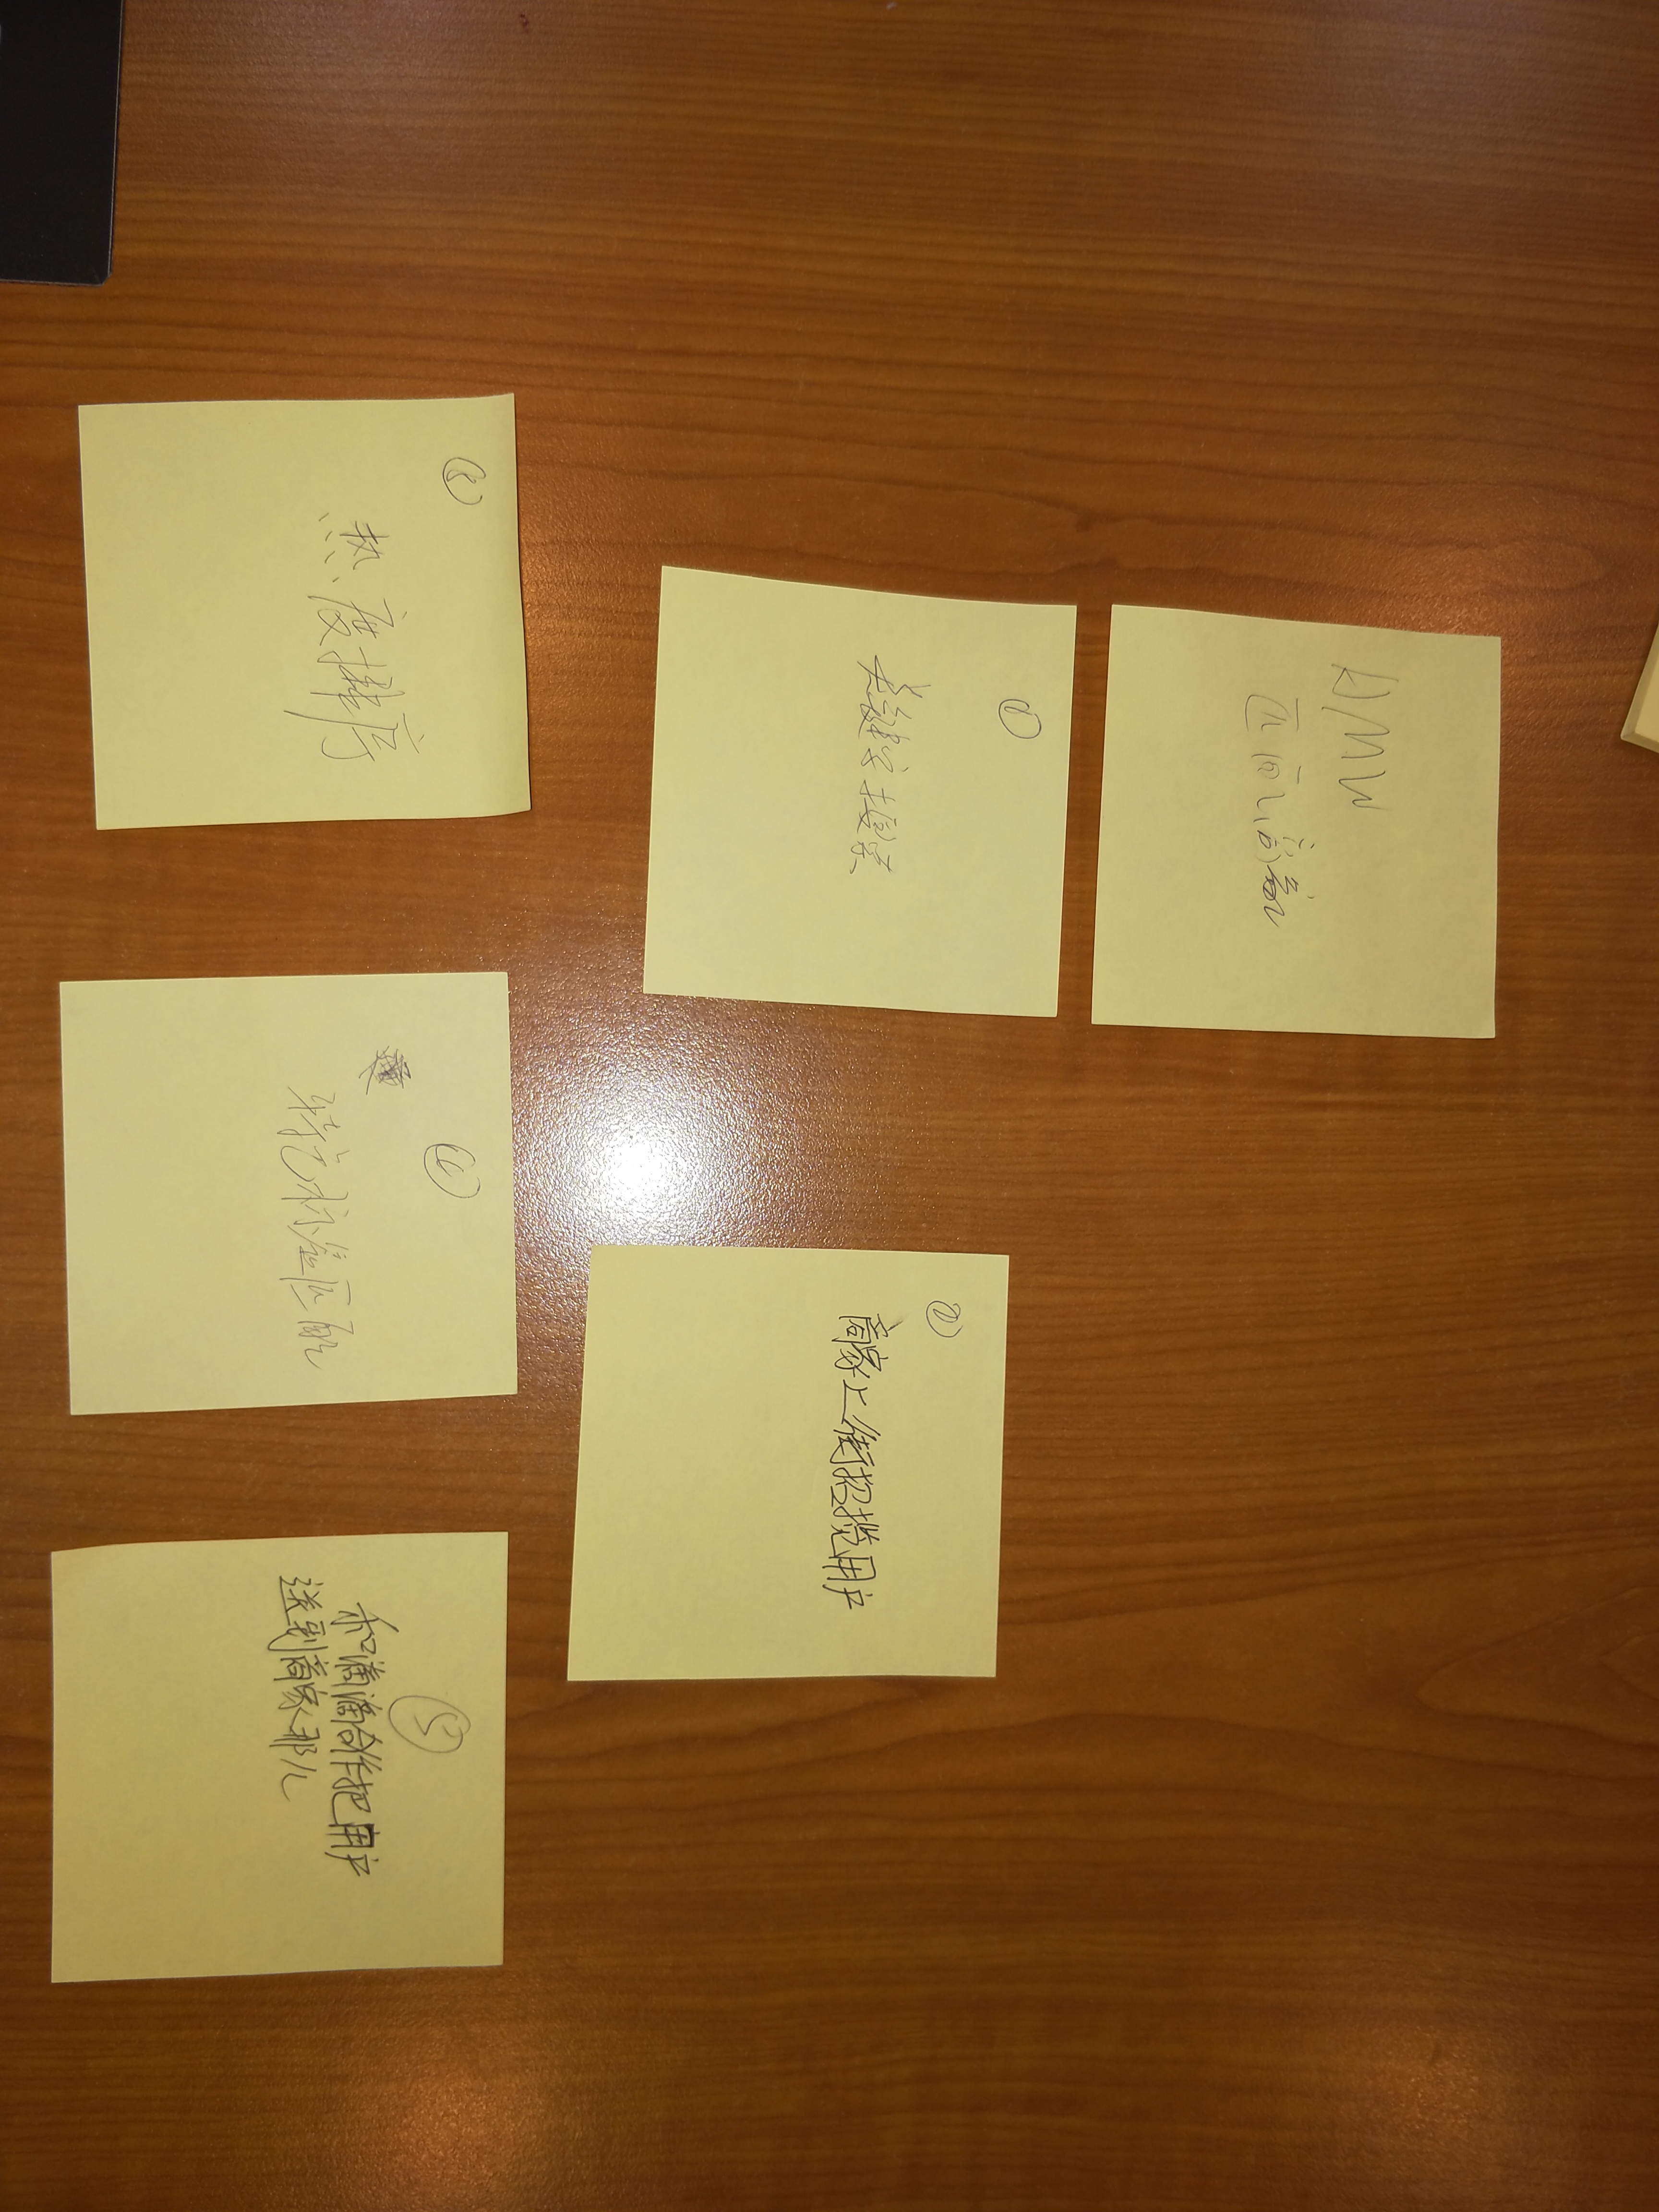 HMW
匹配商家
①
关键字搜索
②
商家上街招揽用户
③
热度排序
④
特色标签匹配
⑤
和滴滴合作把用户
送到商家那儿